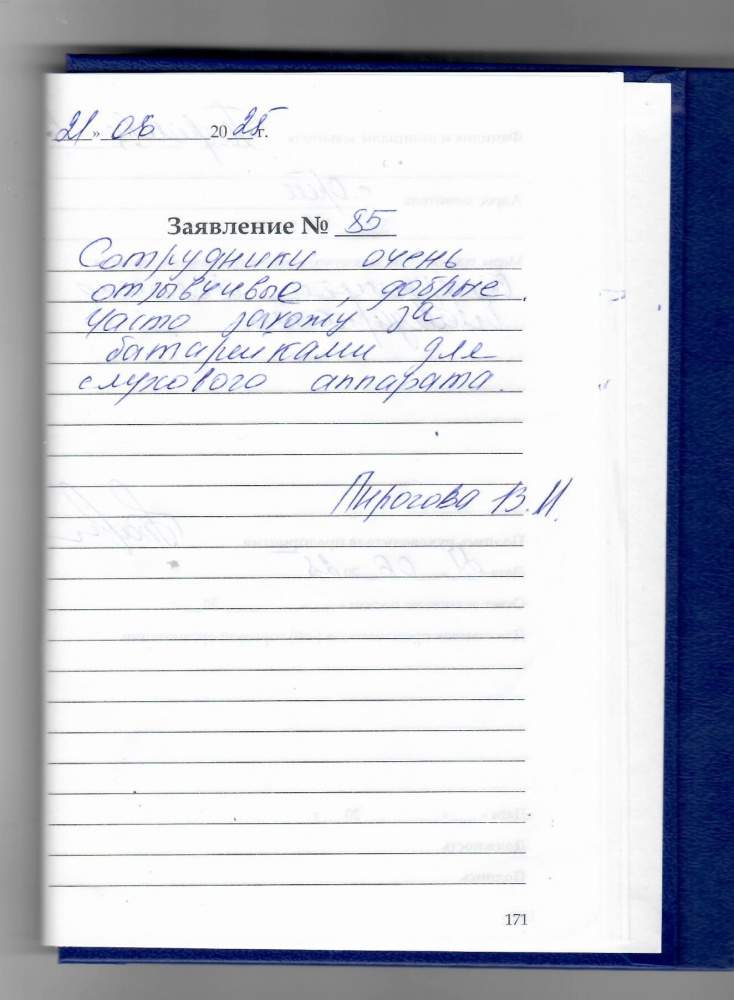 21 » 06 2025 г.
Заявление № 85
Сотрудники очень
отзывчивые, добрые.
Часто захожу за
батарейками для
слухового аппарата.
Пирогова В.И.
171